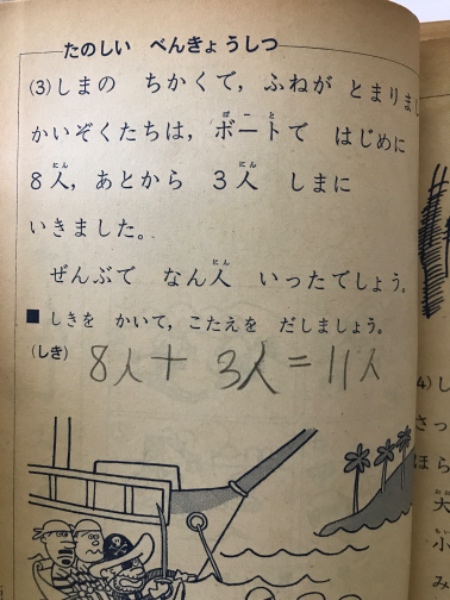 たのしい べんきょうしつ
(3)しまの ちかくて, ふねが とまりまし
かいぞくたちは, ボートで はじめに
8人, あとから 3人 しまに
いきました。
ぜんぶで なん人 いったでしょう。
■ しきを かいて, こたえを だしましょう。
(しき) 8人+3人=11人
4)し
さっ
ほら
大
小
み